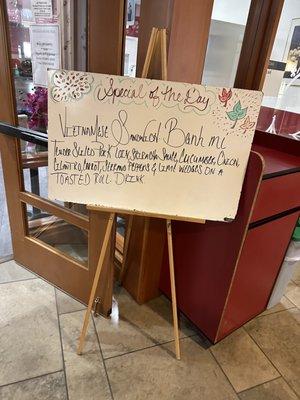 Special of The Day
Vietnamese Sandwich Banh mi
Tender Sliced Pork Loin, Cucumber, Onion
Cilantro, Carrot, Serrano Peppers & Lime Wedges on a
Toasted Roll Drink